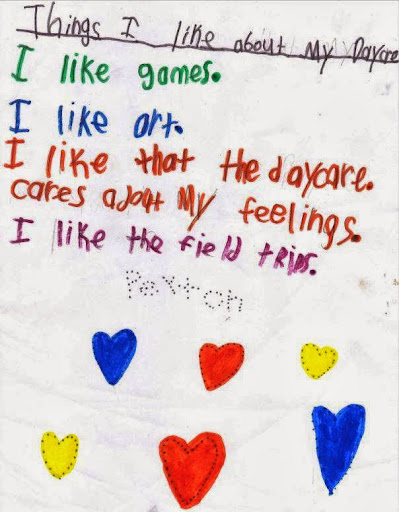 Things I like about My Daycare
I like games.
I like art.
I like that the daycare.
cares about My feelings.
I like the field trips.
Payton